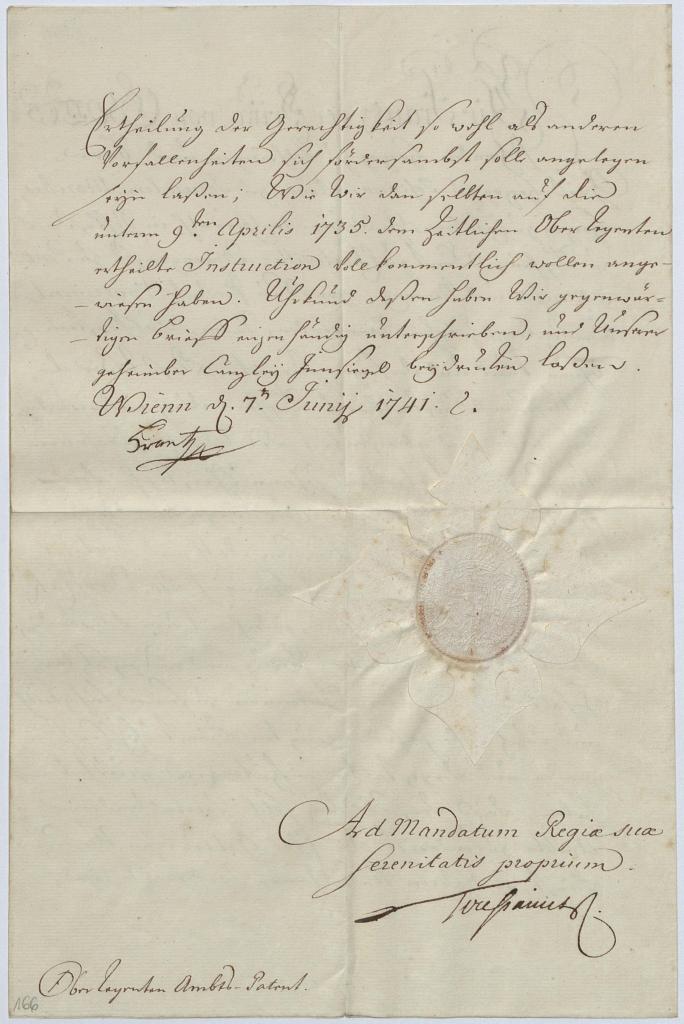 Ertheilung der Gerechtigkeit so wohl als anderen
Vorfallenheiten sich fördersambst solle angelegen
seyn laßen; Wie Wir dan selbten auf die
unterm 9.ten Aprilis 1735. dem Zeitlichen Ober Regenten
ertheilte Instruction Vollkommentlich wollen ange-
-wiesen haben. Uhrkund deßen haben Wir gegenwär-
-tigen brieff eigenhändig unterschrieben, und Unserer
geheimber Canzley Innsiegel beydrucken laßen.
Wienn d. 7.t Junij 1741.
Frantz
Ad Mandatum Regiæ suæ
Serenitatis proprium.
Ober Regenten Ambts-Patent.
166